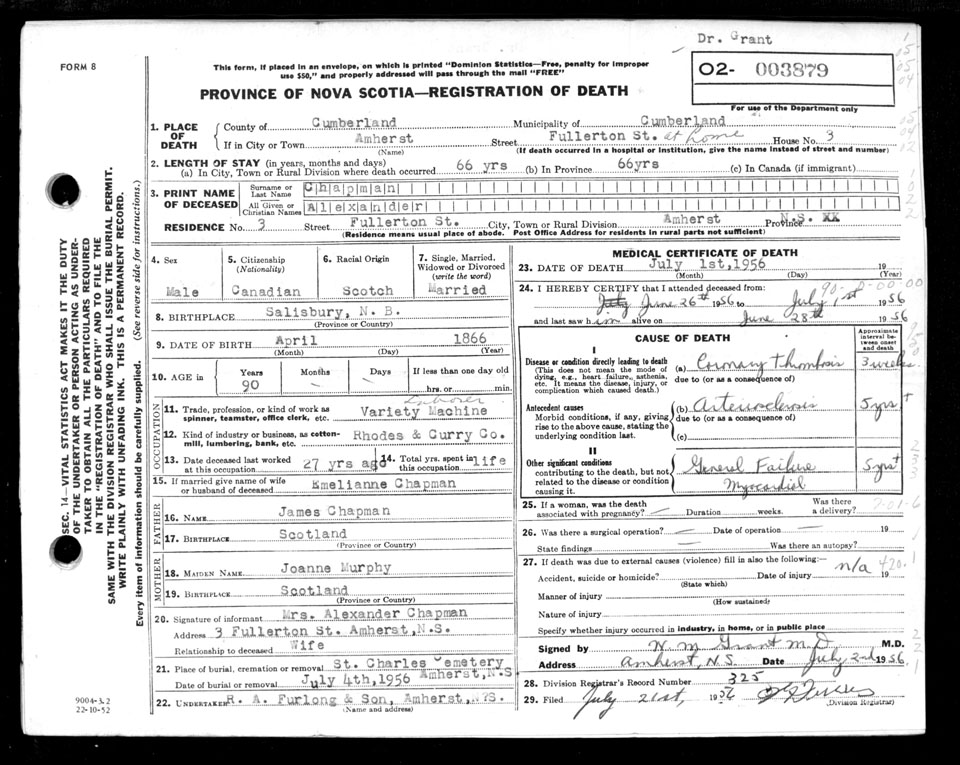 Dr. Grant
FORM 8
This form, if placed in an envelope, on which is printed "Dominion Statistics—Free, penalty for improper
use $50," and properly addressed will pass through the mail "FREE"
02- 003879
PROVINCE OF NOVA SCOTIA—REGISTRATION OF DEATH
For use of the Department only
1. PLACE OF DEATH
County of Cumberland Municipality of Cumberland
If in City or Town Amherst Street Fullerton St. at home House No. 3
(Name) (If death occurred in a hospital or institution, give the name instead of street and number)
2. LENGTH OF STAY (in years, months and days)
(a) In City, Town or Rural Division where death occurred 66 yrs (b) In Province 66yrs (c) In Canada (if immigrant)
3. PRINT NAME OF DECEASED
Surname or Last Name Chapman
All Given or Christian Names Alexander
RESIDENCE No. 3 Street Fullerton St. City, Town or Rural Division Amherst Province N.S. XX
(Residence means usual place of abode. Post Office Address for residents in rural parts not sufficient)
4. Sex
Male
5. Citizenship
(Nationality)
Canadian
6. Racial Origin
Scotch
7. Single, Married,
Widowed or Divorced
(write the word)
Married
8. BIRTHPLACE Salisbury, N. B.
(Province or Country)
9. DATE OF BIRTH April 1866
(Month) (Day) (Year)
10. AGE in
Years Months Days If less than one day old
90 - - hrs. or min.
OCCUPATION
11. Trade, profession, or kind of work as
spinner, teamster, office clerk, etc. Laborer Variety Machine
12. Kind of industry or business, as cotton-
mill, lumbering, bank, etc. Rhodes & Curry Co.
13. Date deceased last worked
at this occupation 27 yrs ago
14. Total yrs. spent in
this occupation life
15. If married give name of wife
or husband of deceased Emelianne Chapman
FATHER
16. NAME James Chapman
17. BIRTHPLACE Scotland
(Province or Country)
MOTHER
18. MAIDEN NAME Joanne Murphy
19. BIRTHPLACE Scotland
(Province or Country)
20. Signature of informant Mrs. Alexander Chapman
Address 3 Fullerton St. Amherst,N.S.
Relationship to deceased Wife
21. Place of burial, cremation or removal St. Charles Cemetery
Amherst,N.S.
Date of burial or removal July 4th,1956
22. UNDERTAKER R. A. Furlong & Son, Amherst, N.S.
(Name and address)
MEDICAL CERTIFICATE OF DEATH
23. DATE OF DEATH July 1st,1956 19
(Month) (Day) (Year)
24. I HEREBY CERTIFY that I attended deceased from:
July June 26th 1956 to July 1st 1956
and last saw him alive on June 28th 1956
CAUSE OF DEATH
Approximate
interval be-
tween onset
and death
I
Disease or condition directly leading to death
(This does not mean the mode of
dying, e.g., heart failure, asthenia,
etc. It means the disease, injury, or
complication which caused death.)
(a) Coronary Thrombosis 3 weeks
due to (or as a consequence of)
Antecedent causes
Morbid conditions, if any, giving
rise to the above cause, stating the
underlying condition last.
(b) Arteriosclerosis 5 yrs +
due to (or as a consequence of)
(c)
II
Other significant conditions
contributing to the death, but not
related to the disease or condition
causing it.
General Failure 5 yrs +
Myocardial
25. If a woman, was the death
associated with pregnancy? Duration weeks. Was there
a delivery?
26. Was there a surgical operation? Date of operation 19
State findings Was there an autopsy?
27. If death was due to external causes (violence) fill in also the following: n/a 420.1
Accident, suicide or homicide? Date of injury 19
(State which)
Manner of injury
(How sustained)
Nature of injury
Specify whether injury occurred in industry, in home, or in public place
Signed by N. M. Grant M.D M.D.
Address Amherst, N.S. Date July 2nd 1956
28. Division Registrar's Record Number 325
29. Filed July 21st, 1956
(Division Registrar)
SEC. 14—VITAL STATISTICS ACT MAKES IT THE DUTY
OF THE UNDERTAKER OR PERSON ACTING AS UNDER-
TAKER TO OBTAIN ALL THE PARTICULARS REQUIRED
IN THE "REGISTRATION OF DEATH" AND TO FILE THE
SAME WITH THE DIVISION REGISTRAR WHO SHALL ISSUE THE BURIAL PERMIT.
WRITE PLAINLY WITH UNFADING INK. THIS IS A PERMANENT RECORD.
Every item of information should be carefully supplied. (See reverse side for instructions.)
9004-3.2
22-10-52